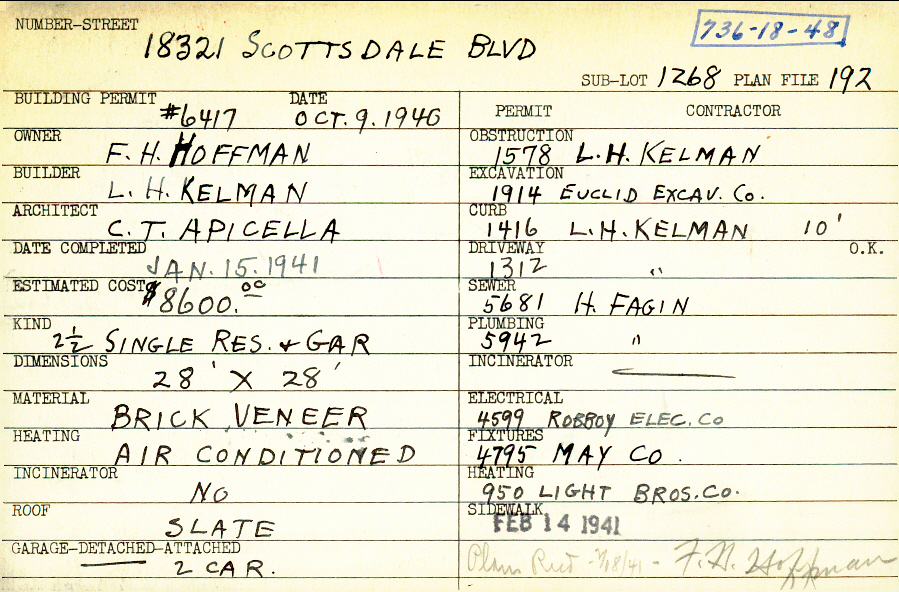 NUMBER-STREET
18321 SCOTTSDALE BLVD
736-18-48
SUB-LOT 1268 PLAN FILE 192
BUILDING PERMIT DATE
#6417 OCT. 9. 1940
OWNER
F. H. HOFFMAN
BUILDER
L. H. KELMAN
ARCHITECT
C. T. APICELLA
DATE COMPLETED
JAN. 15. 1941
ESTIMATED COST
$8600.00
KIND
2½ SINGLE RES. & GAR
DIMENSIONS
28' X 28'
MATERIAL
BRICK VENEER
HEATING
AIR CONDITIONED
INCINERATOR
NO
ROOF
SLATE
GARAGE-DETACHED-ATTACHED
2 CAR.
PERMIT CONTRACTOR
OBSTRUCTION
1578 L. H. KELMAN
EXCAVATION
1914 EUCLID EXCAV. Co.
CURB
1416 L. H. KELMAN 10'
DRIVEWAY O.K.
1312 "
SEWER
5681 H. FAGIN
PLUMBING
5942 "
INCINERATOR
ELECTRICAL
4599 ROBROY ELEC. Co
FIXTURES
4795 MAY CO.
HEATING
950 LIGHT BROS. Co.
SIDEWALK
FEB 14 1941
Plans - F. H. Hoffman